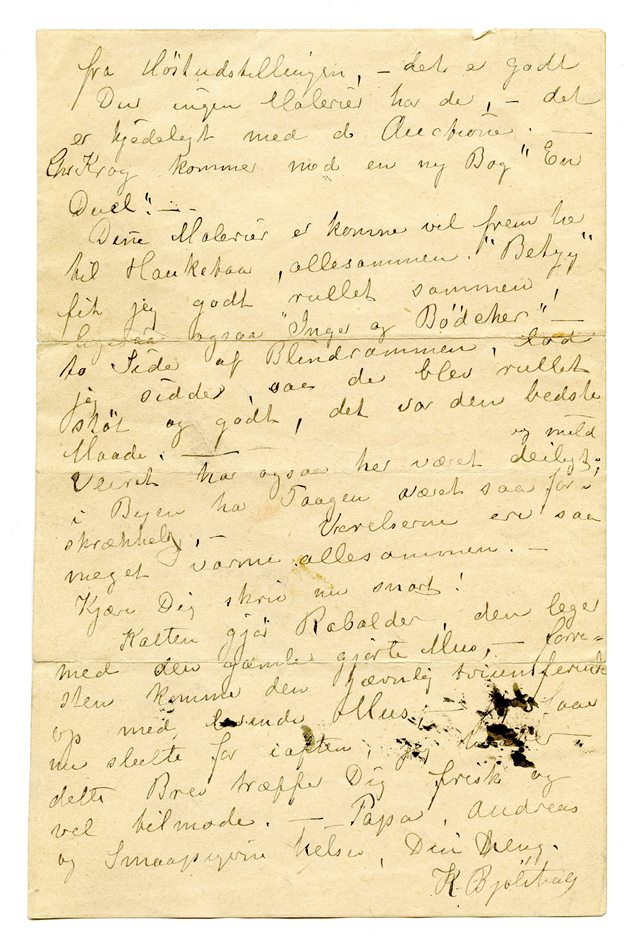 fra Höstudstillingen, – det er godt
Du ingen Malerier har de, – det
er kjedeligt med de Auctione. –
Chr Krog kommer med en ny Bog "En
Duel". – –
Dine Malerier er komne vel frem he
til Hauketaa, allesammen. "Betzy"
fik jeg godt rullet sammen,
ligesaa ogsaa "Inge og Bödeker" –
to Side af Blindrammen, lod
jeg sidde, saa de blev rullet
stöt og godt, det var den bedste
Maade. –
og mild
Veiret har ogsaa her været deiligt;
i Byen ha Taagen været saa for-
skrækkelig, – Værelserne ere saa
meget varme allesammen. –
Kjære Dig skriv nu snart!
Katten gjör Rabalder, den leger
med den gamle gjorte Mus, – forre-
sten komme den jævnlig
op med levende Mus, – Saa
nu slutte for iaften,
dette Brev træffe Dig frisk og
vel tilmode. – Papa, Andreas
og Smaapigerne helse, Din Deng.
K. Bjölstad